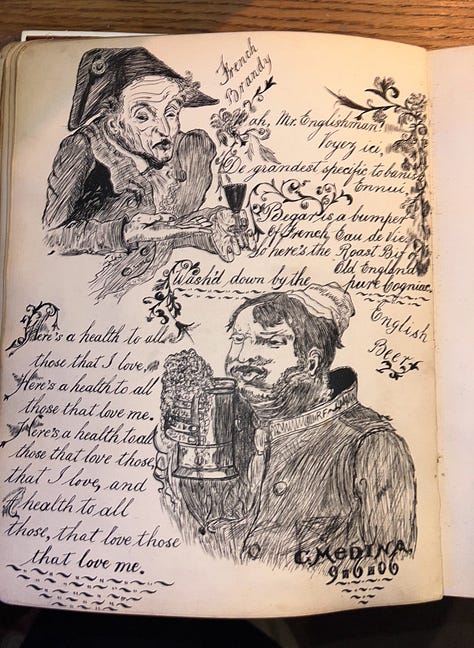 French
Brandy
ah, Mr. Englishman!
Voyez ici,
De grandest specific to banis
Ennui,
Begar is a bumper
of French Eau de Vie
So here's the Roast Bif of
Old England
Wash'd down by the pure Cogniac.
English
Beer
Here's a health to all
those that I love,
Here's a health to all
those that love me.
Here's a health to all
those that love those,
that I love, and
A health to all
those, that love those
that love me.
C. MEDINA.
9=6=06